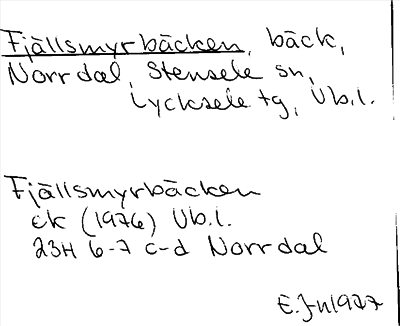 Fjällsmyrbäcken, bäck,
Norrdal, Stensele sn,
Lycksele tg, Vb.l.
Fjällsmyrbäcken
ek (1976) Vb.l.
23H 6-7 c-d Norrdal
E.J-n 1977